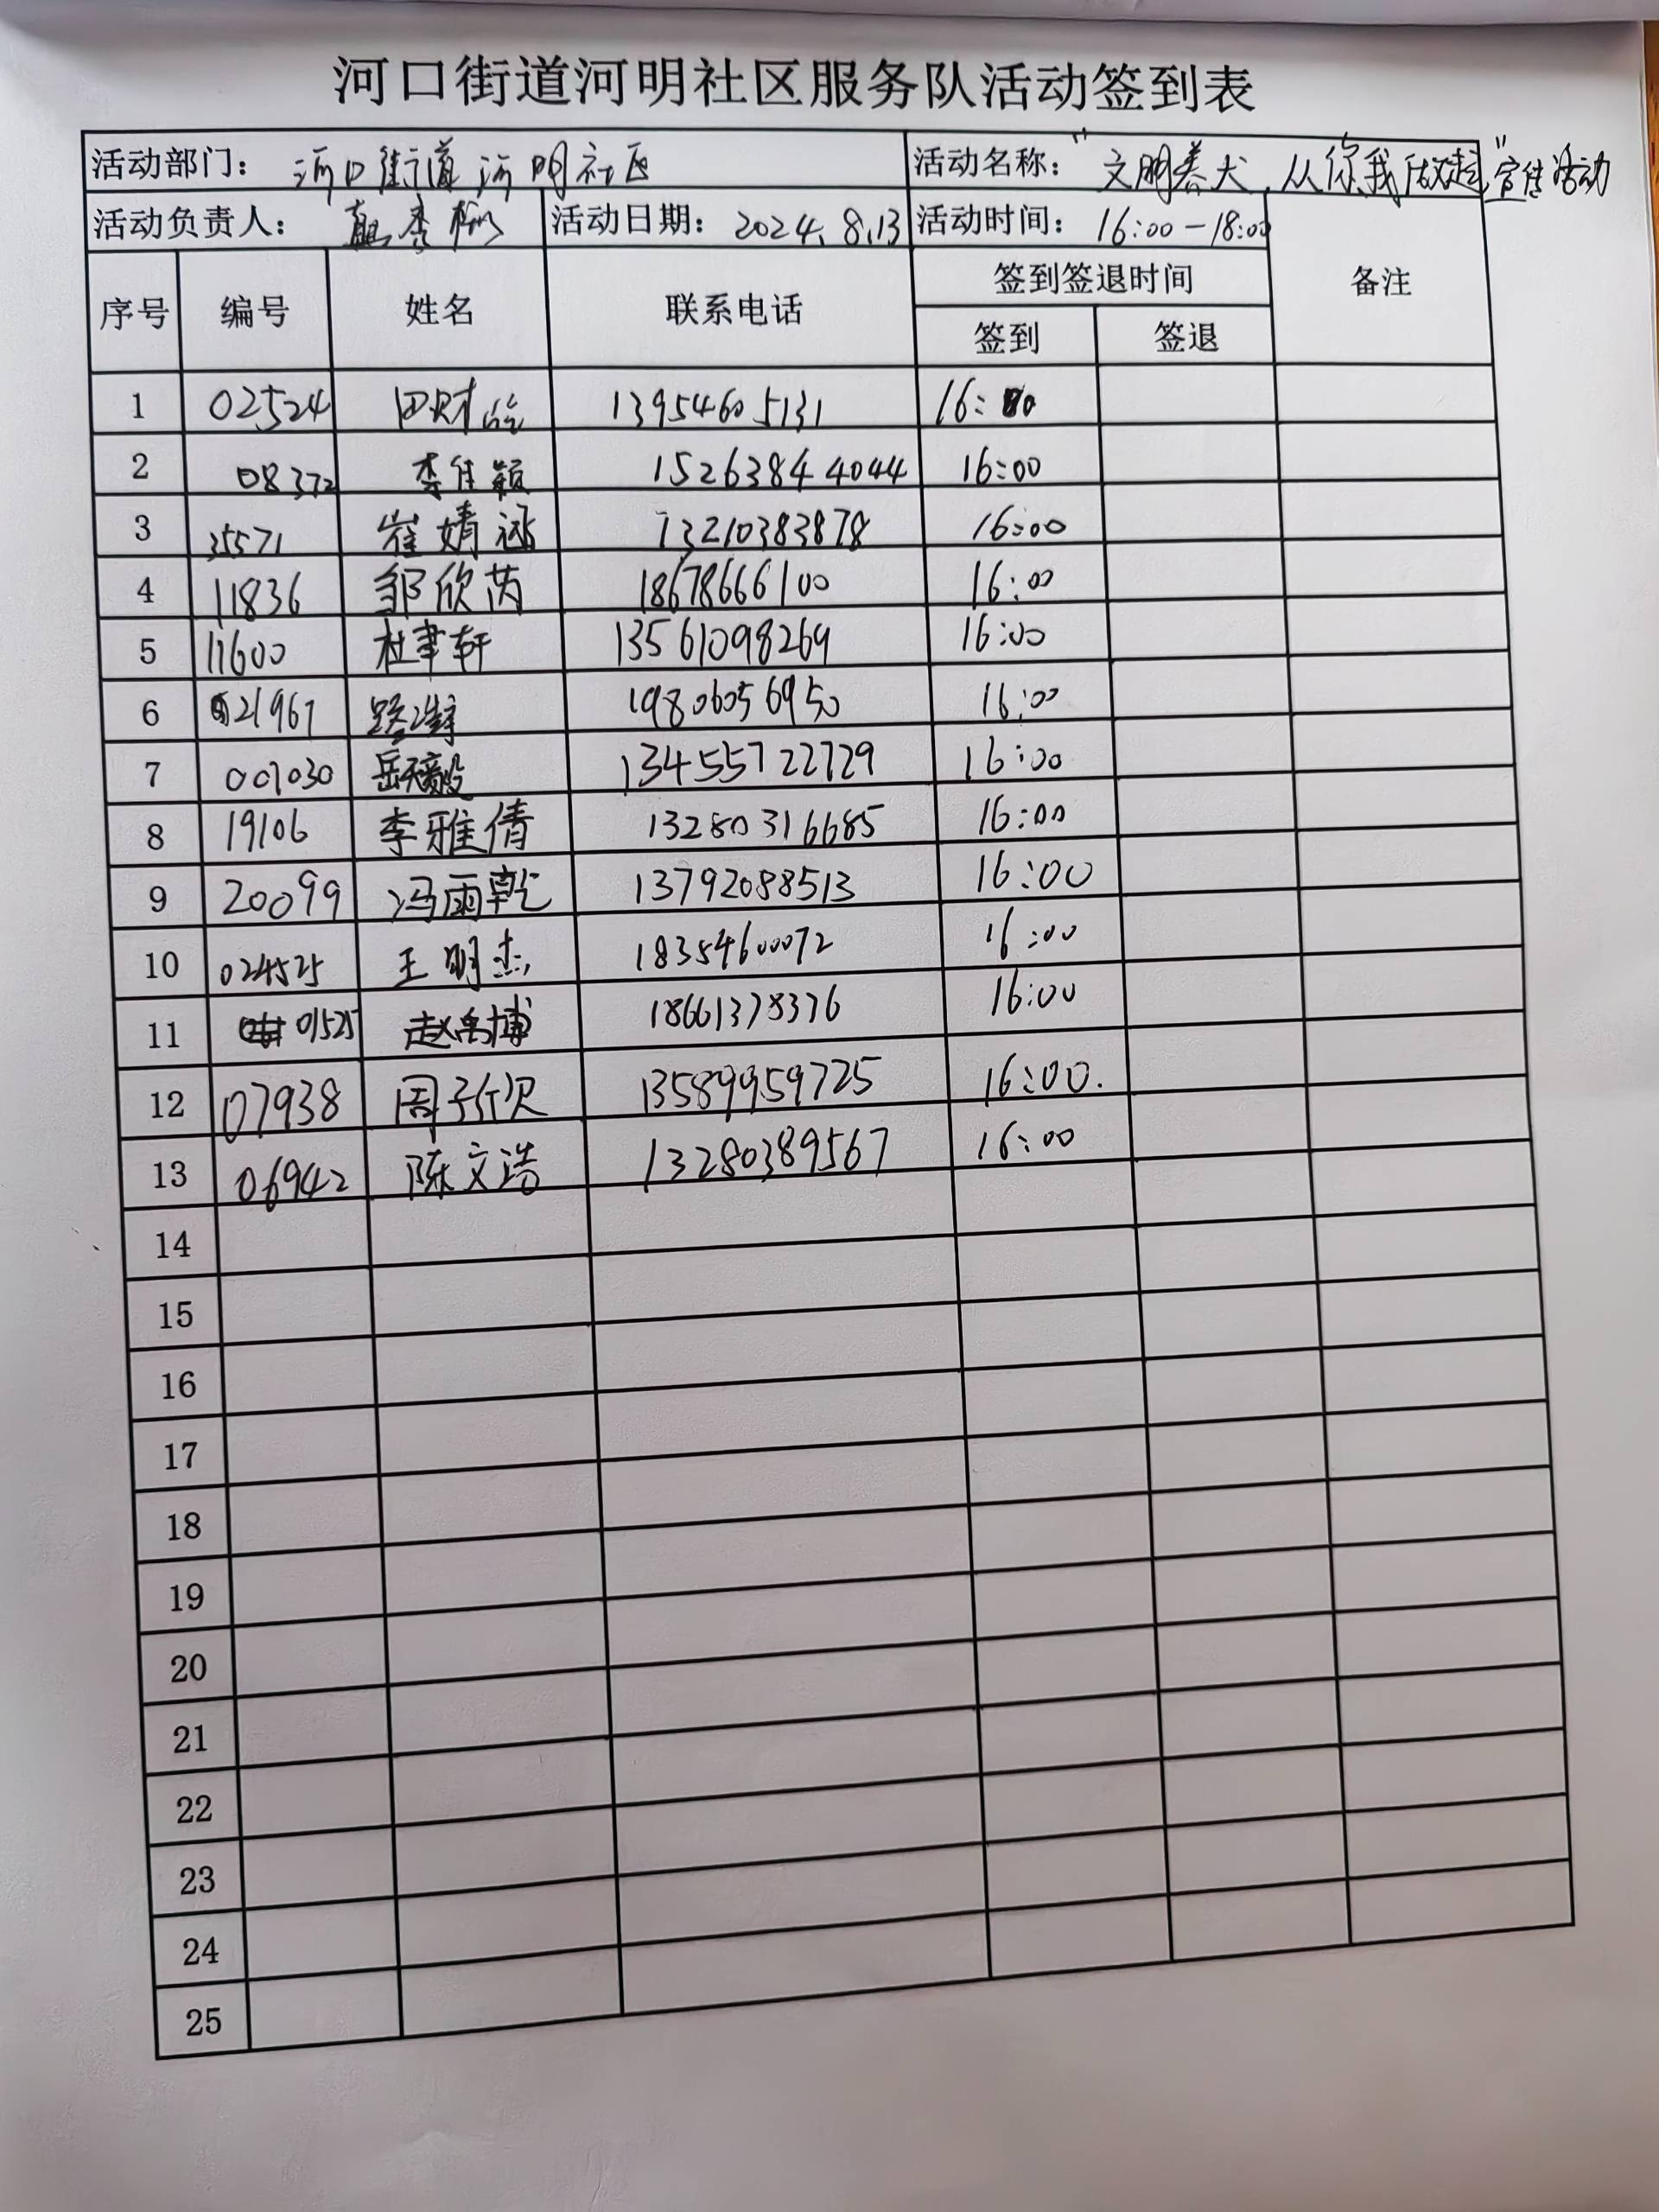 河口街道河明社区服务队活动签到表
活动部门： 河口街道河明社区 活动名称： “文明养犬，从你我做起”宣传活动
活动负责人： 活动日期： 2024.8.13 活动时间： 16:00-18:00
序号 编号 姓名 联系电话 签到签退时间 备注
签到 签退
1 02524 田财 13954605131 16:00
2 08372 李佳颖 15263844044 16:00
3 35571 崔婧涵 13210383878 16:00
4 11836 邹欣芮 18678666100 16:00
5 11600 杜聿轩 13561098269 16:00
6 021967 路 19806056950 16:00
7 007030 岳 13455722729 16:00
8 19106 李雅倩 13280316685 16:00
9 20099 冯雨乾 13792088513 16:00
10 024525 王明杰 18354600072 16:00
11 01525 赵禹博 18661378376 16:00
12 07938 周子欣 13589959725 16:00.
13 06942 陈文浩 13280389567 16:00
14
15
16
17
18
19
20
21
22
23
24
25